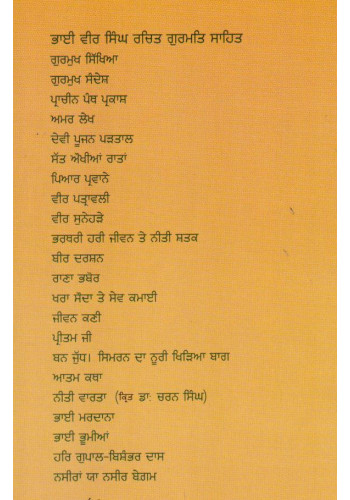 ਭਾਈ ਵੀਰ ਸਿੰਘ ਰਚਿਤ ਗੁਰਮਤਿ ਸਾਹਿਤ
ਗੁਰਮੁਖ ਸਿੱਖਿਆ
ਗੁਰਮੁਖ ਸੰਦੇਸ਼
ਪ੍ਰਾਚੀਨ ਪੰਥ ਪ੍ਰਕਾਸ਼
ਅਮਰ ਲੇਖ
ਦੇਵੀ ਪੂਜਨ ਪੜਤਾਲ
ਸੱਤ ਔਖੀਆਂ ਰਾਤਾਂ
ਪਿਆਰ ਪ੍ਰਵਾਨੇ
ਵੀਰ ਪਤ੍ਰਾਵਲੀ
ਵੀਰ ਸੁਨੇਹੜੇ
ਭਰਥਰੀ ਹਰੀ ਜੀਵਨ ਤੇ ਨੀਤੀ ਸ਼ਤਕ
ਬੀਰ ਦਰਸ਼ਨ
ਰਾਣਾ ਭਬੋਰ
ਖਰਾ ਸੌਦਾ ਤੇ ਸੇਵ ਕਮਾਈ
ਜੀਵਨ ਕਣੀ
ਪ੍ਰੀਤਮ ਜੀ
ਬਨ ਜੁੱਧ। ਸਿਮਰਨ ਦਾ ਨੂਰੀ ਖਿੜਿਆ ਬਾਗ
ਆਤਮ ਕਥਾ
ਨੀਤੀ ਵਾਰਤਾ (ਕ੍ਰਿਤ ਡਾ: ਚਰਨ ਸਿੰਘ)
ਭਾਈ ਮਰਦਾਨਾ
ਭਾਈ ਭੂਮੀਆਂ
ਹਰਿ ਗੁਪਾਲ-ਬਿਸ਼ੰਭਰ ਦਾਸ
ਨਸੀਰਾਂ ਯਾ ਨਸੀਰ ਬੇਗਮ